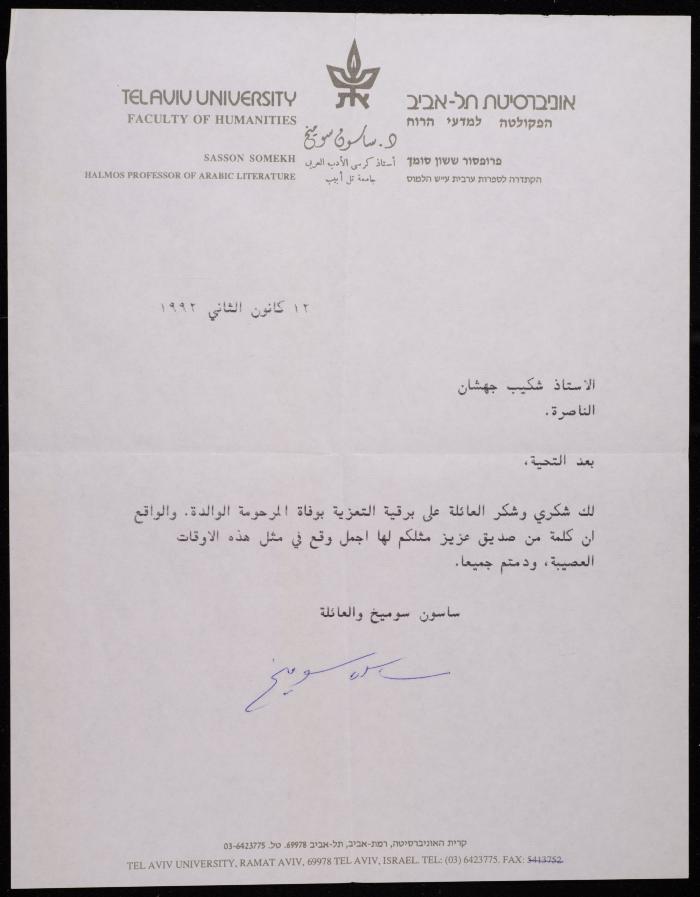 TEL AVIV UNIVERSITY
FACULTY OF HUMANITIES
SASSON SOMEKH
HALMOS PROFESSOR OF ARABIC LITERATURE
את
د. ساسون سوميخ
أستاذ كرسي الأدب العربي
جامعة تل أبيب
אוניברסיטת תל-אביב
הפקולטה למדעי הרוח
פרופסור ששון סומך
הקתדרה לספרות ערבית ע״ש הלמוס
١٢ كانون الثاني ١٩٩٢
الاستاذ شكيب جهشان
الناصرة.
بعد التحية،
لك شكري وشكر العائلة على برقية التعزية بوفاة المرحومة الوالدة. والواقع
ان كلمة من صديق عزيز مثلكم لها اجمل وقع في مثل هذه الاوقات
العصيبة، ودمتم جميعا.
ساسون سوميخ والعائلة
ساسون سوميخ
קרית האוניברסיטה, רמת-אביב, תל-אביב 69978. טל. 03-6423775
TEL AVIV UNIVERSITY, RAMAT AVIV, 69978 TEL AVIV, ISRAEL. TEL: (03) 6423775. FAX: 5413752